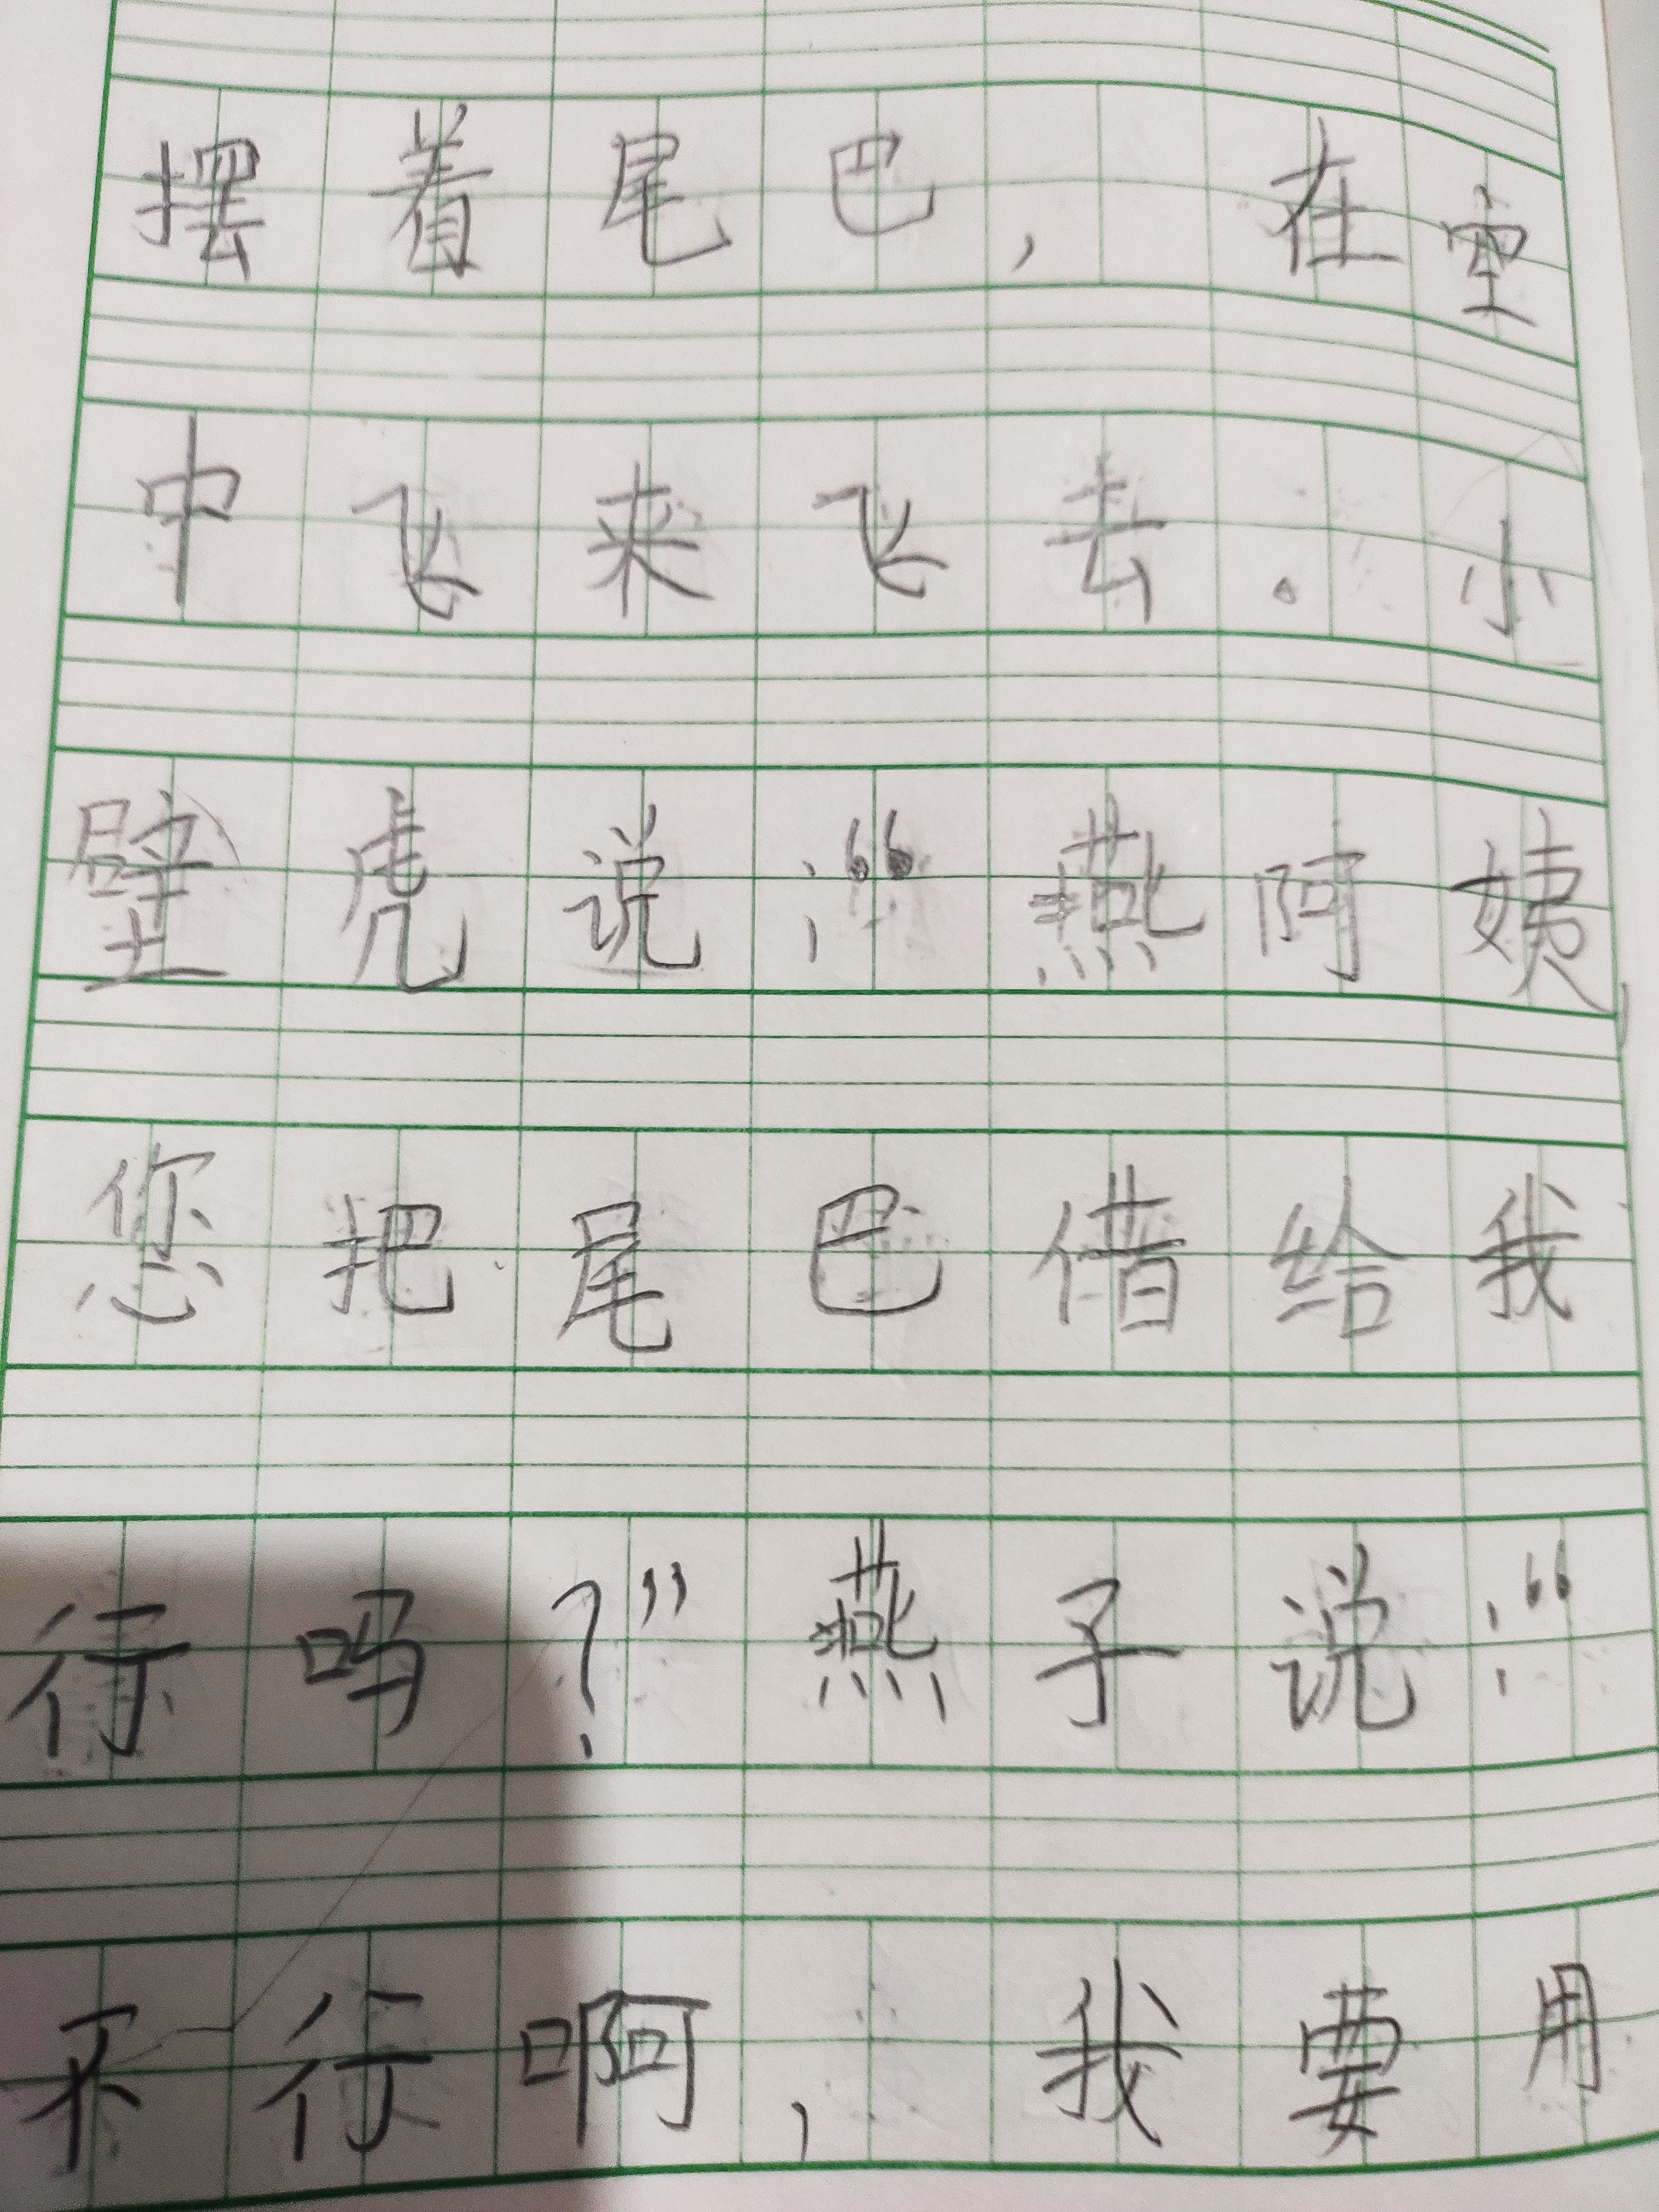 摆着尾巴，在空
中飞来飞去。小
壁虎说：“燕阿姨，
您把尾巴借给我
行吗？”燕子说：“
不行啊，我要用